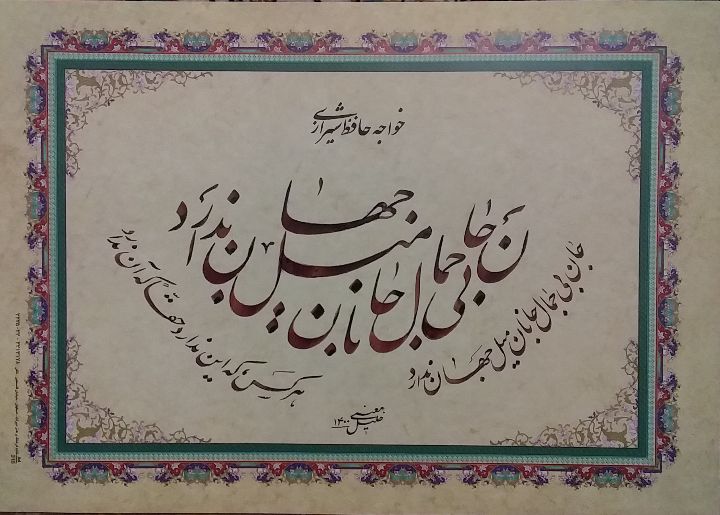 خواجه حافظ شیرازی
جان بی جمال جانان میل جهان ندارد
جان بی جمال جانان میل جهان ندارد
هر کس که این ندارد حقا که آن ندارد
۱۴۰۰